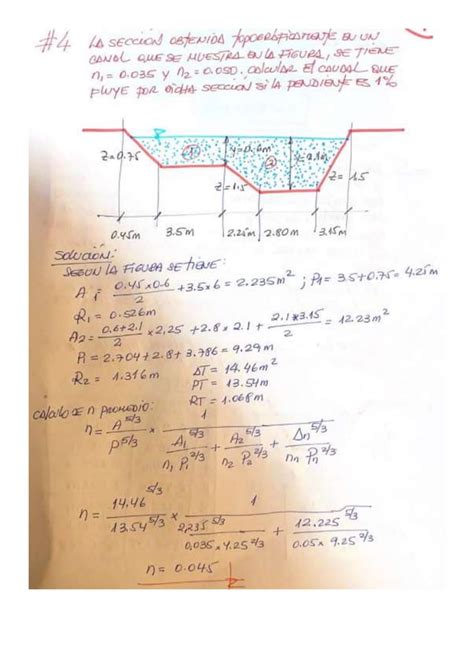 #4 LA SECCION OBTENIDA TOPOGRAFICAMENTE EN UN
CANAL QUE SE MUESTRA EN LA FIGURA, SE TIENE
n₁ = 0.035 y n₂ = 0.050. Calcular El CAUDAL QUE
FLUYE POR DICHA SECCION SI LA PENDIENTE ES 1%
Z=0.75 ① y=0.6m ② y=2.1m
Z=1.5 Z=1.5
0.45m 3.5m 2.25m 2.80m 3.15m
SOLUCION:
SEGUN LA FIGURA SE TIENE:
A₁ = 0.45x0.6/2 + 3.5x6 = 2.235m² ; P1 = 3.5+0.75 = 4.25m
R₁ = 0.526m
A₂ = 0.6+2.1/2 x 2,25 + 2.8x2.1 + 2.1x3.15/2 = 12.23m²
P₁ = 2.704+2.8+3.786 = 9.29m
R₂ = 1.316m ΔT = 14.46m²
PT = 13.54m
RT = 1.068m
CALCULO DE n PROMEDIO:
n = A^5/3 / P^5/3 x 1 / A₁^5/3 / n₁ P₁^2/3 + A₂^5/3 / n₂ P₂^2/3 + Δn^5/3 / nn Pn^2/3
n = 14.46^5/3 / 13.54^5/3 x 1 / 2,235^5/3 / 0,035x4.25^2/3 + 12.225^5/3 / 0.05x9.25^2/3
n = 0.045